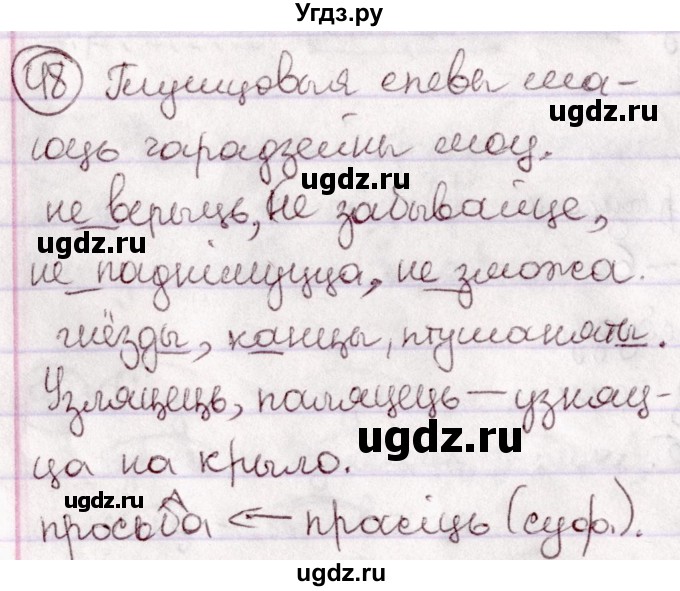 Угдз.ру
48 Глушцовыя спевы ма-
юць чарадзейны моц.
не верыць, не забывайце,
не паднімуцца, не зможа.
гнёзды, канцы, птушаняты.
Узляцець, паляцець — узняц-
ца на крыло.
просьба ← прасіць (суф.).
ugdz.ru
ugdz.ru
ugdz.ru
ugdz.ru
ugdz.ru
ugdz.ru
ugdz.ru